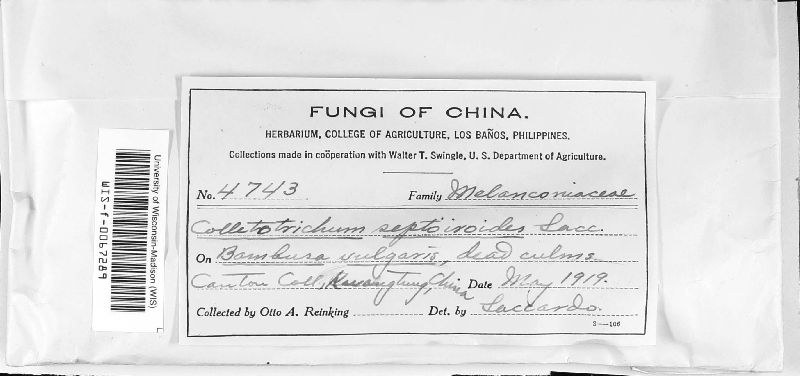 FUNGI OF CHINA.
HERBARIUM, COLLEGE OF AGRICULTURE, LOS BAÑOS, PHILIPPINES.
Collections made in coöperation with Walter T. Swingle, U. S. Department of Agriculture.
No. 4743 Family Melanconiaceae
Colletotrichum septorioides Sacc.
On Bambusa vulgaris, dead culms
Canton Coll, Kwangtung, China Date May 1919.
Collected by Otto A. Reinking Det. by Saccardo.
3—106
University of Wisconsin-Madison (WIS)
WIS-f-0067289